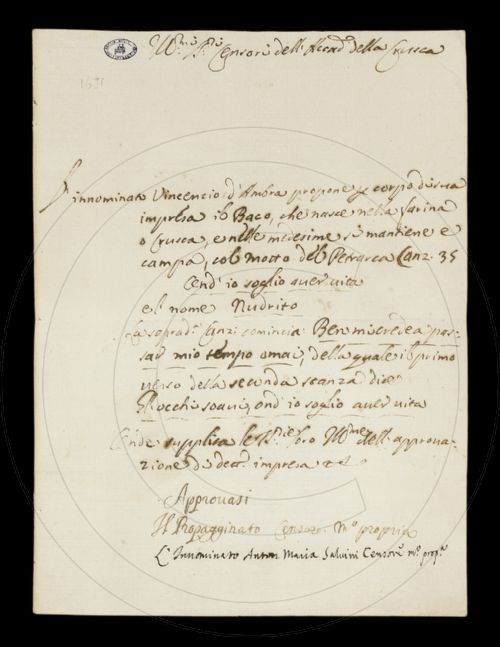 Ill.mi Sig.ri Censori dell'Accad.a della Crusca
1691
L'innominato Vincenzio d'Ambra propone p corpo di sua
impresa il Baco, che nasce nella farina
o Crusca, e nelle medesime si mantiene e
campa, col motto del Petrarca Canz. 35
Ond'io soglio auer uita
e il nome Nudrito
La soprad.a Canz. comincia Ben mi credea pas-
sar mio tempo omai, della quale il primo
uerso della seconda stanza dice
Gl'occhi soaui, ond'io soglio auer uita
Onde supplica le loro Ill.me dell'approua-
zione di dett. impresa
Approuasi
Il Propagginato Censore m.o propria
L'Innominato Anton Maria Saluini Censore m.o prop.a